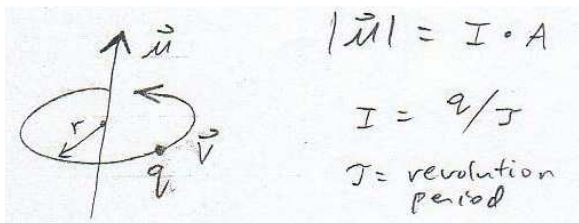 μ⃗
r
v⃗
q
|μ⃗| = I · A
I = q/T
T = revolution
period